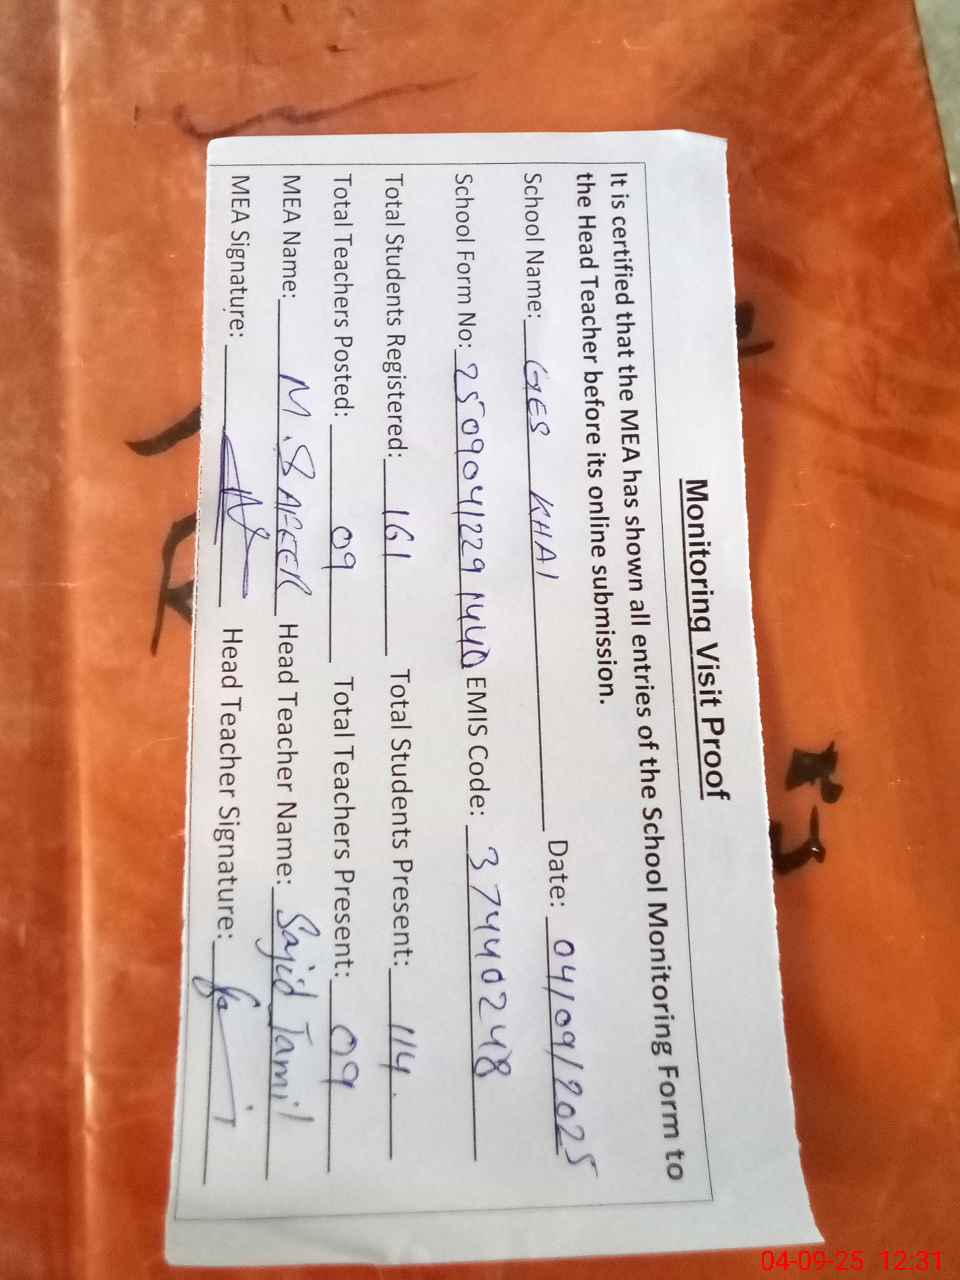 Monitoring Visit Proof
It is certified that the MEA has shown all entries of the School Monitoring Form to
the Head Teacher before its online submission.
School Name: GES KHAI Date: 04/09/2025
School Form No: 25090412291440 EMIS Code: 37440248
Total Students Registered: 161 Total Students Present: 114
Total Teachers Posted: 09 Total Teachers Present: 09
MEA Name: M. SAFEER Head Teacher Name: Sajid Jamil
MEA Signature: Head Teacher Signature:
04-09-25 12:31